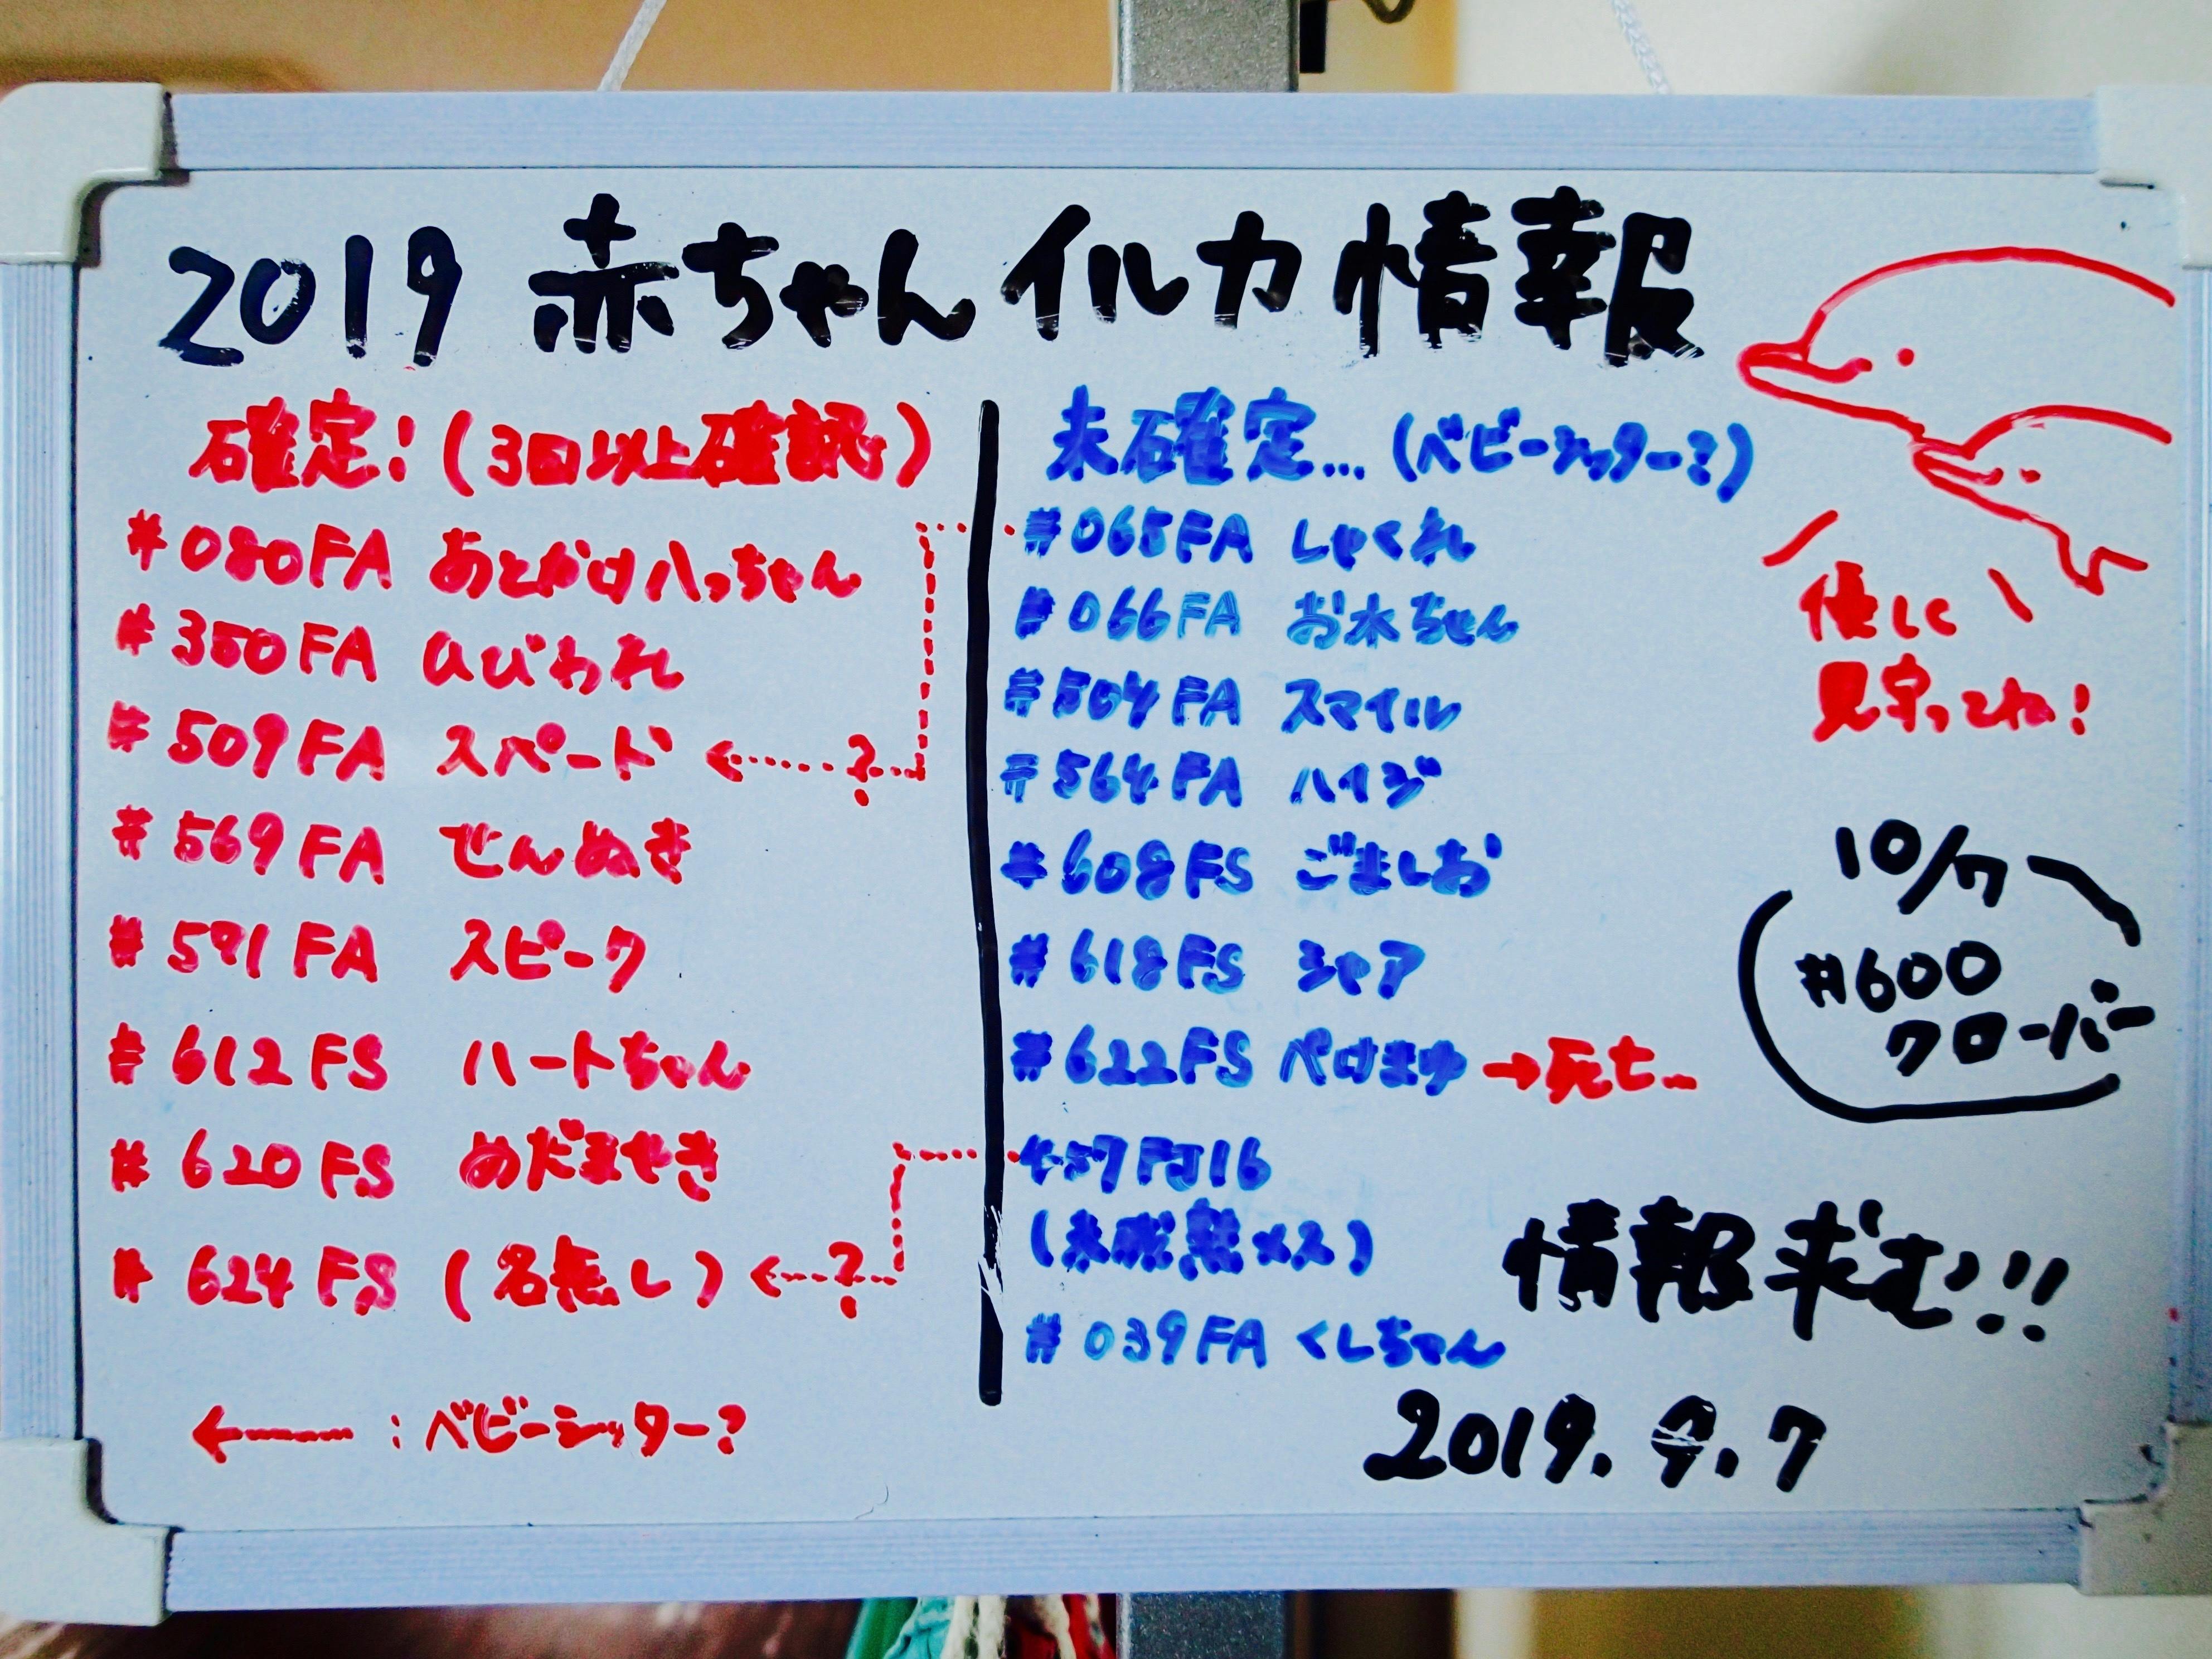 2019 赤ちゃんイルカ情報
確定!(3回以上確認)
#080FA あとかけ八っちゃん
#350FA ひびわれ
#509FA スペード ?
#569FA せんぬき
#591FA スピーク
#612FS ハートちゃん
#620FS めだまやき
#624FS (名無し) ?
:ベビーシッター?
未確定...(ベビーシッター?)
#065FA しゃくれ
#066FA お水ちゃん
#504FA スマイル
#564FA ハイジ
#608FS ごましお
#618FS シャア
#622FS ぺけまゆ →死亡...
457FJ16
(未成熟メス)
#039FA くしちゃん
優しく
見守ってね!
10/7
#600
クローバー
情報求む!!
2019.9.7